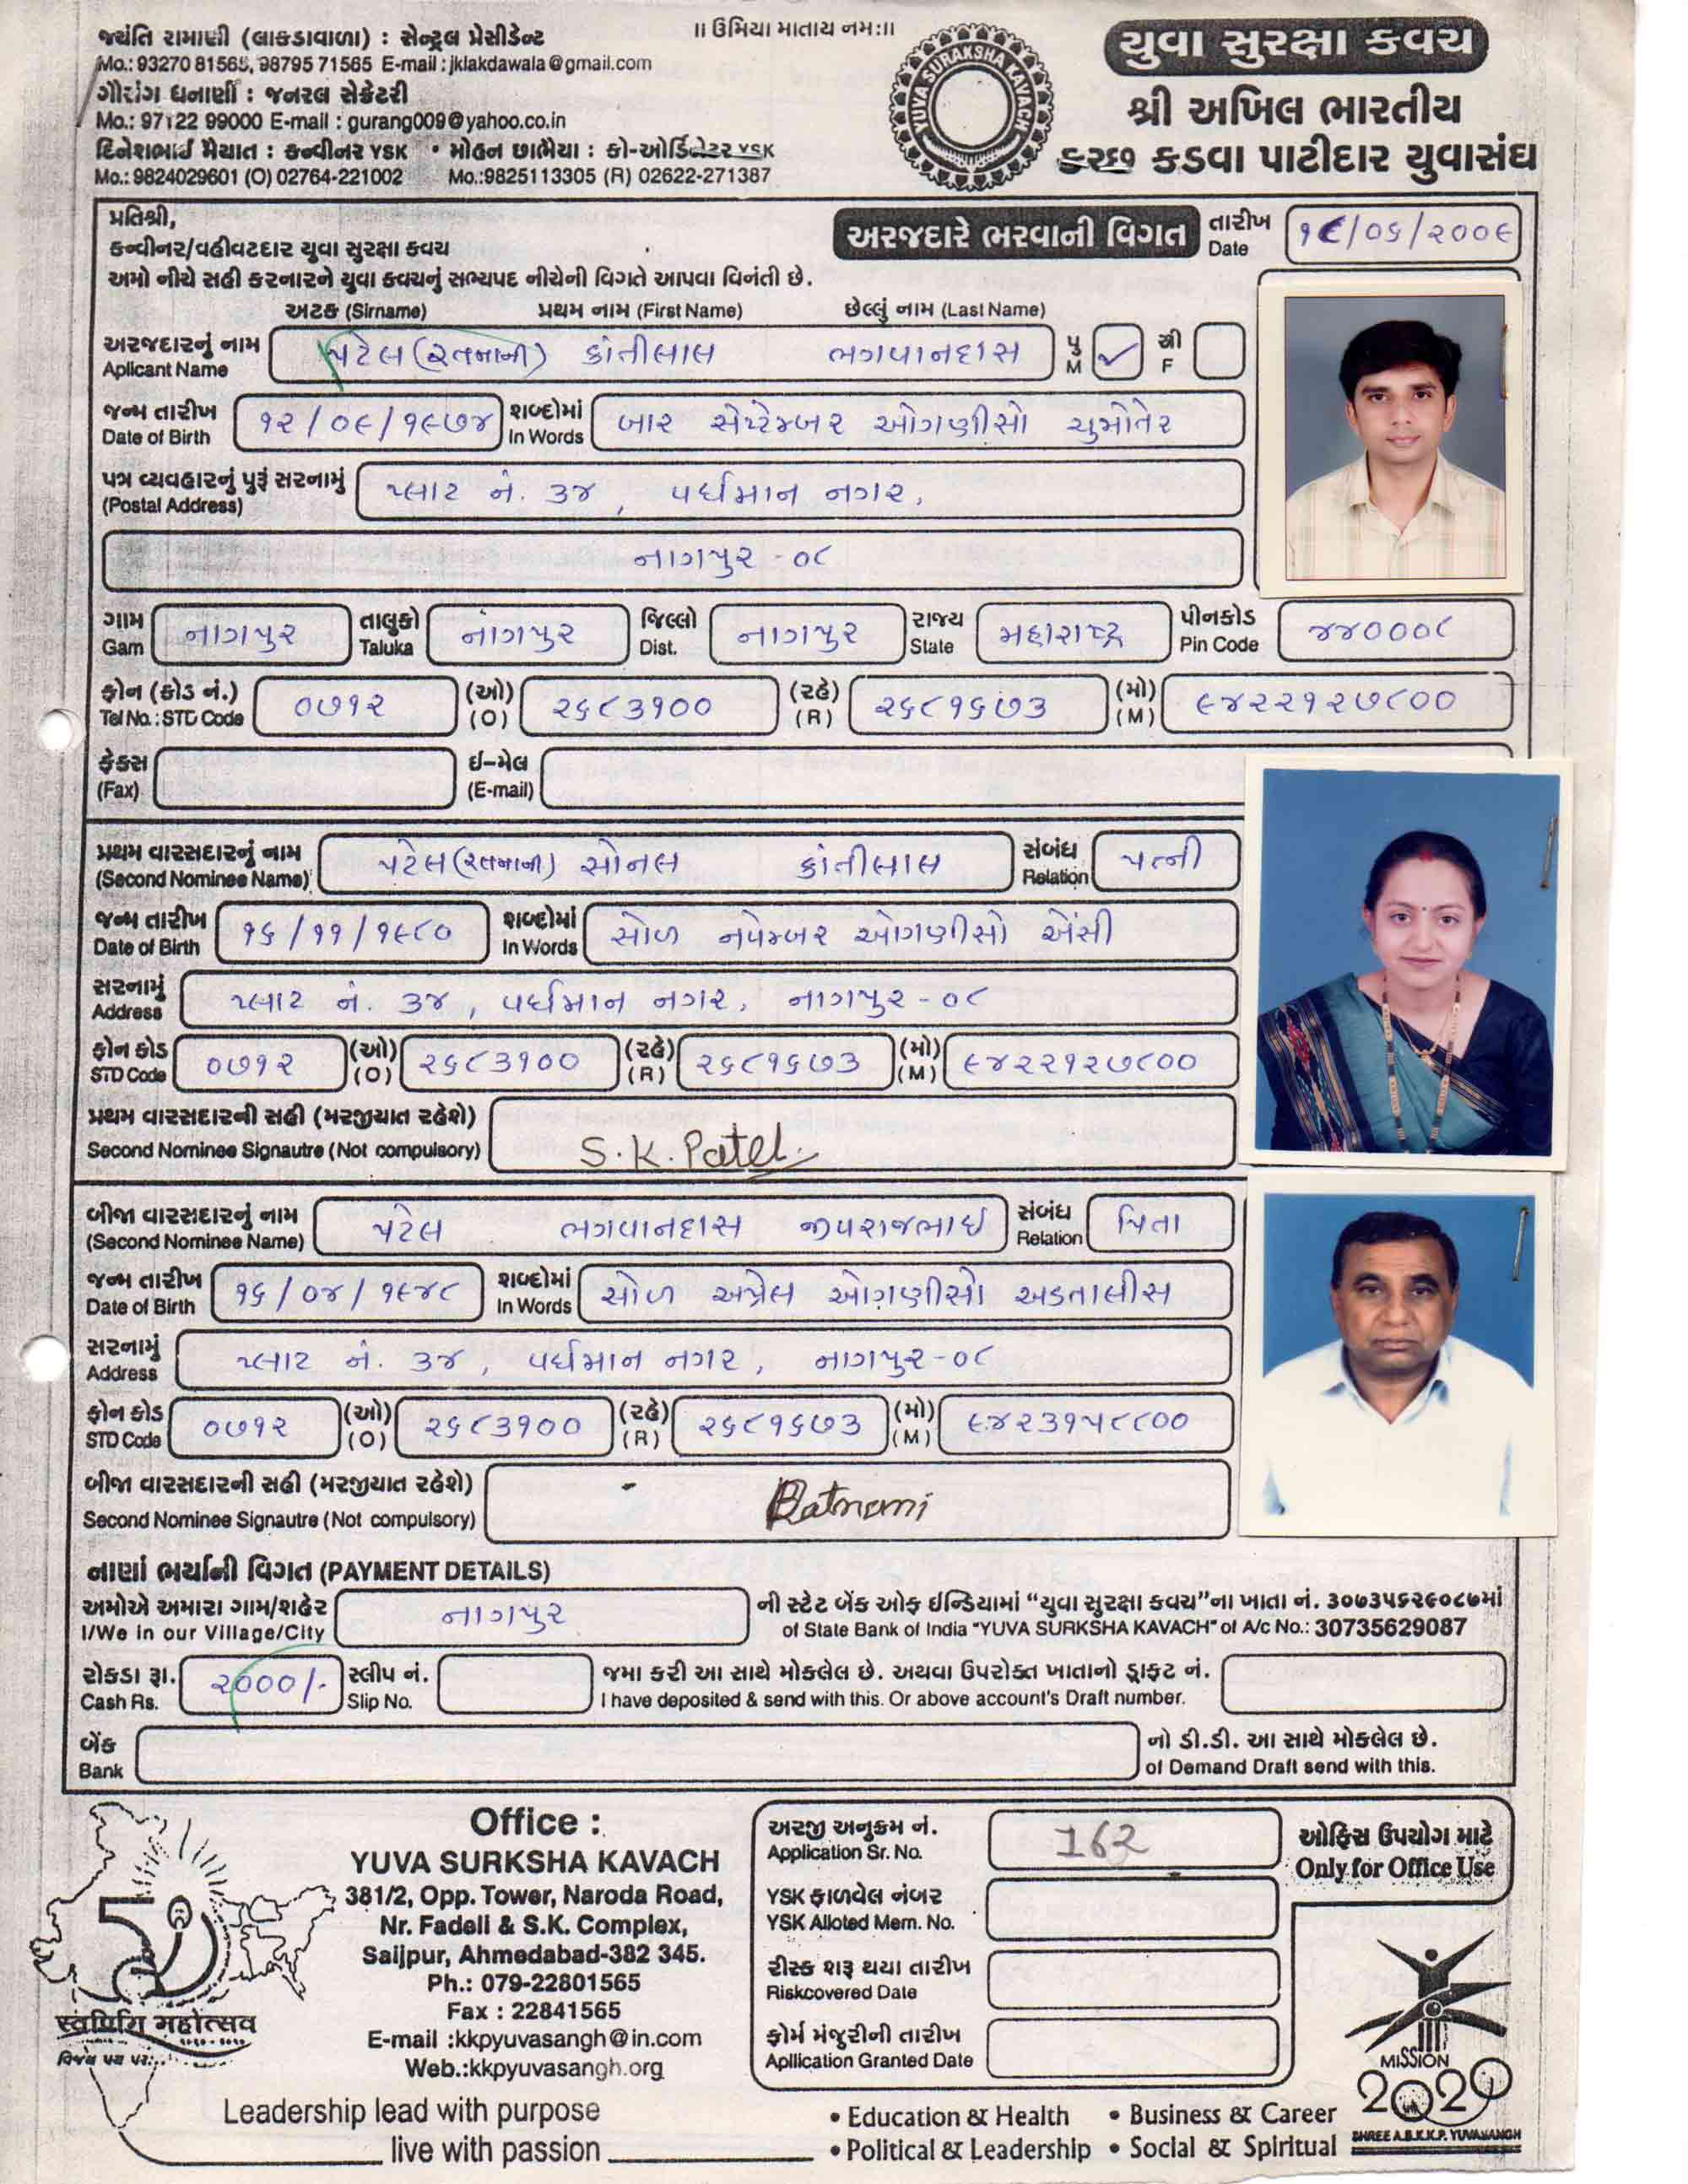 ॥ ઉમિયા માતાય નમઃ॥
જયંતિ રામાણી (લાકડાવાળા) : સેન્ટ્રલ પ્રેસીડેન્ટ
Mo.: 93270 81565, 98795 71565 E-mail : jklakdawala@gmail.com
ગૌરાંગ ધનાણી : જનરલ સેક્રેટરી
Mo.: 97122 99000 E-mail : gurang009@yahoo.co.in
દિનેશભાઈ મૈયાત : કન્વીનર YSK • મોહન છાભૈયા : કો-ઓર્ડિનેટર YSK
Mo.: 9824029601 (O) 02764-221002 Mo.:9825113305 (R) 02622-271387
YUVA SURAKSHA KAVACH
યુવા સુરક્ષા કવચ
શ્રી અખિલ ભારતીય
કચ્છ કડવા પાટીદાર યુવાસંઘ
પ્રતિશ્રી,
કન્વીનર/વહીવટદાર યુવા સુરક્ષા કવચ
અરજદારે ભરવાની વિગત
તારીખ Date ૧૯/૦૬/૨૦૦૯
અમો નીચે સહી કરનારને યુવા કવચનું સભ્યપદ નીચેની વિગતે આપવા વિનંતી છે.
અટક (Sirname) પ્રથમ નામ (First Name) છેલ્લું નામ (Last Name)
અરજદારનું નામ Aplicant Name પટેલ (રતનાની) કાંતીલાલ ભગવાનદાસ પુ M ✓ સ્ત્રી F
જન્મ તારીખ Date of Birth ૧૨/૦૯/૧૯૭૪ શબ્દોમાં In Words બાર સેપ્ટેમ્બર ઓગણીસો ચુમોતેર
પત્ર વ્યવહારનું પુરૂં સરનામું (Postal Address) પ્લાટ નં. ૩૪, વર્ધમાન નગર,
નાગપુર - ૦૮
ગામ Gam નાગપુર તાલુકો Taluka નાગપુર જિલ્લો Dist. નાગપુર રાજ્ય State મહારાષ્ટ્ર પીનકોડ Pin Code ૪૪૦૦૦૮
ફોન (કોડ નં.) Tel No.: STD Code ૦૭૧૨ (ઓ) (O) ૨૬૮૩૧૦૦ (રહે) (R) ૨૬૮૧૬૭૩ (મો) (M) ૯૪૨૨૧૨૭૮૦૦
ફેકસ (Fax) ઈ-મેલ (E-mail)
પ્રથમ વારસદારનું નામ (Second Nominee Name) પટેલ (રતનાની) સોનલ કાંતીલાલ સંબંધ Relation પત્ની
જન્મ તારીખ Date of Birth ૧૬/૧૧/૧૯૮૦ શબ્દોમાં In Words સોળ નવેમ્બર ઓગણીસો એંસી
સરનામું Address પ્લાટ નં. ૩૪, વર્ધમાન નગર, નાગપુર - ૦૮
ફોન કોડ STD Code ૦૭૧૨ (ઓ) (O) ૨૬૮૩૧૦૦ (રહે) (R) ૨૬૮૧૬૭૩ (મો) (M) ૯૪૨૨૧૨૭૮૦૦
પ્રથમ વારસદારની સહી (મરજીયાત રહેશે)
Second Nominee Signautre (Not compulsory) S.K. Patel
બીજા વારસદારનું નામ (Second Nominee Name) પટેલ ભગવાનદાસ જીવરાજભાઈ સંબંધ Relation પિતા
જન્મ તારીખ Date of Birth ૧૬/૦૪/૧૯૪૮ શબ્દોમાં In Words સોળ અપ્રેલ ઓગણીસો અડતાલીસ
સરનામું Address પ્લાટ નં. ૩૪, વર્ધમાન નગર, નાગપુર-૦૮
ફોન કોડ STD Code ૦૭૧૨ (ઓ) (O) ૨૬૮૩૧૦૦ (રહે) (R) ૨૬૮૧૬૭૩ (મો) (M) ૯૪૨૩૧૫૮૮૦૦
બીજા વારસદારની સહી (મરજીયાત રહેશે)
Second Nominee Signautre (Not compulsory) Ratnani
નાણાં ભર્યાની વિગત (PAYMENT DETAILS)
અમોએ અમારા ગામ/શહેર નાગપુર ની સ્ટેટ બેંક ઓફ ઈન્ડિયામાં “યુવા સુરક્ષા કવચ”ના ખાતા નં. ૩૦૭૩૫૬૨૯૦૮૭માં
I/We in our Village/City of State Bank of India "YUVA SURKSHA KAVACH" of A/c No.: 30735629087
રોકડા રૂા. Cash Rs. ૨૦૦૦/- સ્લીપ નં. Slip No. જમા કરી આ સાથે મોકલેલ છે. અથવા ઉપરોક્ત ખાતાનો ડ્રાફ્ટ નં.
I have deposited & send with this. Or above account's Draft number.
બેંક Bank નો ડી.ડી. આ સાથે મોકલેલ છે.
of Demand Draft send with this.
Office :
YUVA SURKSHA KAVACH
381/2, Opp. Tower, Naroda Road,
Nr. Fadeli & S.K. Complex,
Saijpur, Ahmedabad-382 345.
Ph.: 079-22801565
Fax : 22841565
E-mail :kkpyuvasangh@in.com
Web.:kkpyuvasangh.org
50
महोत्सव
અરજી અનુક્રમ નં. Application Sr. No. 162
ઓફિસ ઉપયોગ માટે
Only for Office Use
YSK ફાળવેલ નંબર
YSK Alloted Mem. No.
રીસ્ક શરૂ થયા તારીખ
Riskcovered Date
ફોર્મ મંજુરીની તારીખ
Apllication Granted Date
MISSION
2020
SHREE A.B.K.K.P. YUVASANGH
Leadership lead with purpose
live with passion
• Education & Health • Business & Career
• Political & Leadership • Social & Spiritual